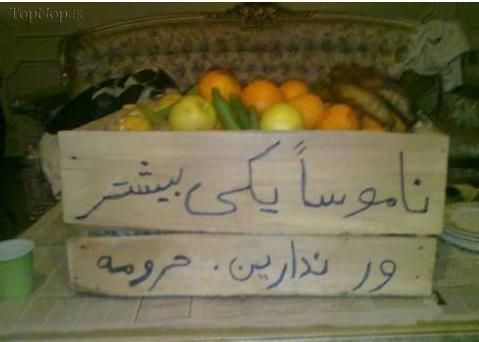 TopNop.ir
ناموساً یکی بیشتر
ور ندارین. حرومه